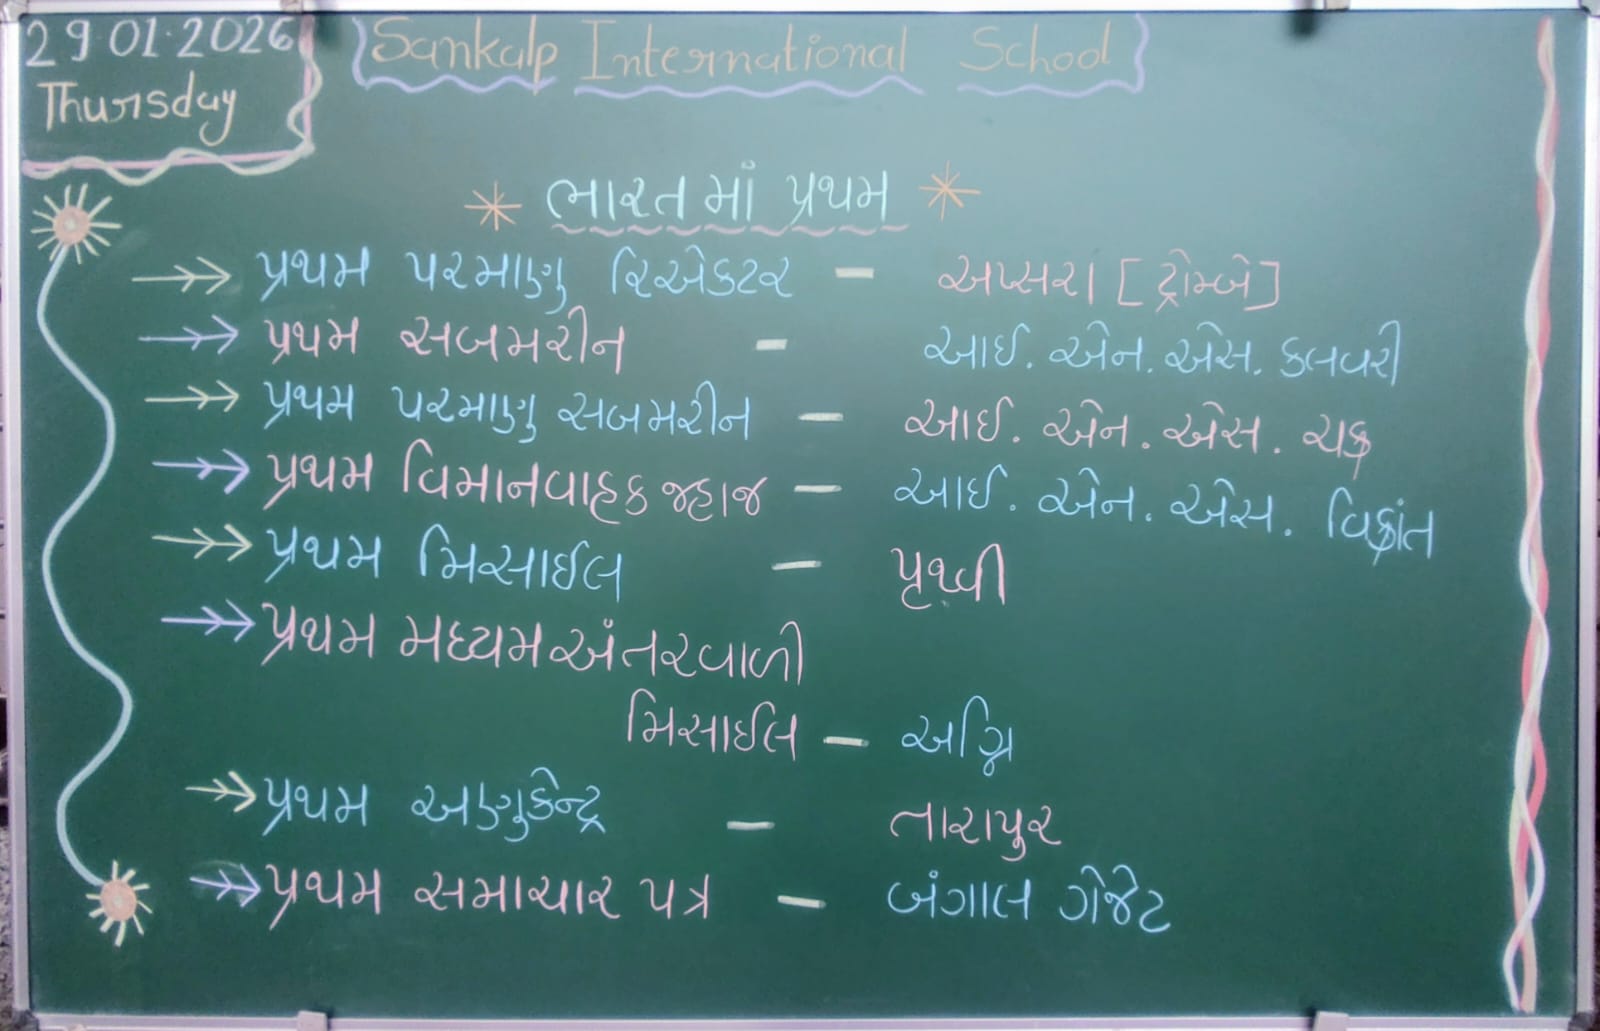 29.01.2026
Thursday
Sankalp International School
ભારતમાં પ્રથમ
પ્રથમ પરમાણુ રિએકટર - અપ્સરા [ટ્રોમ્બે]
પ્રથમ સબમરીન - આઈ. એન. એસ. કલવરી
પ્રથમ પરમાણુ સબમરીન - આઈ. એન. એસ. ચક્ર
પ્રથમ વિમાનવાહક જહાજ - આઈ. એન. એસ. વિક્રાંત
પ્રથમ મિસાઈલ - પૃથ્વી
પ્રથમ મધ્યમ અંતરવાળી
મિસાઈલ - અગ્નિ
પ્રથમ અણુકેન્દ્ર - તારાપુર
પ્રથમ સમાચાર પત્ર - બંગાલ ગેજેટ